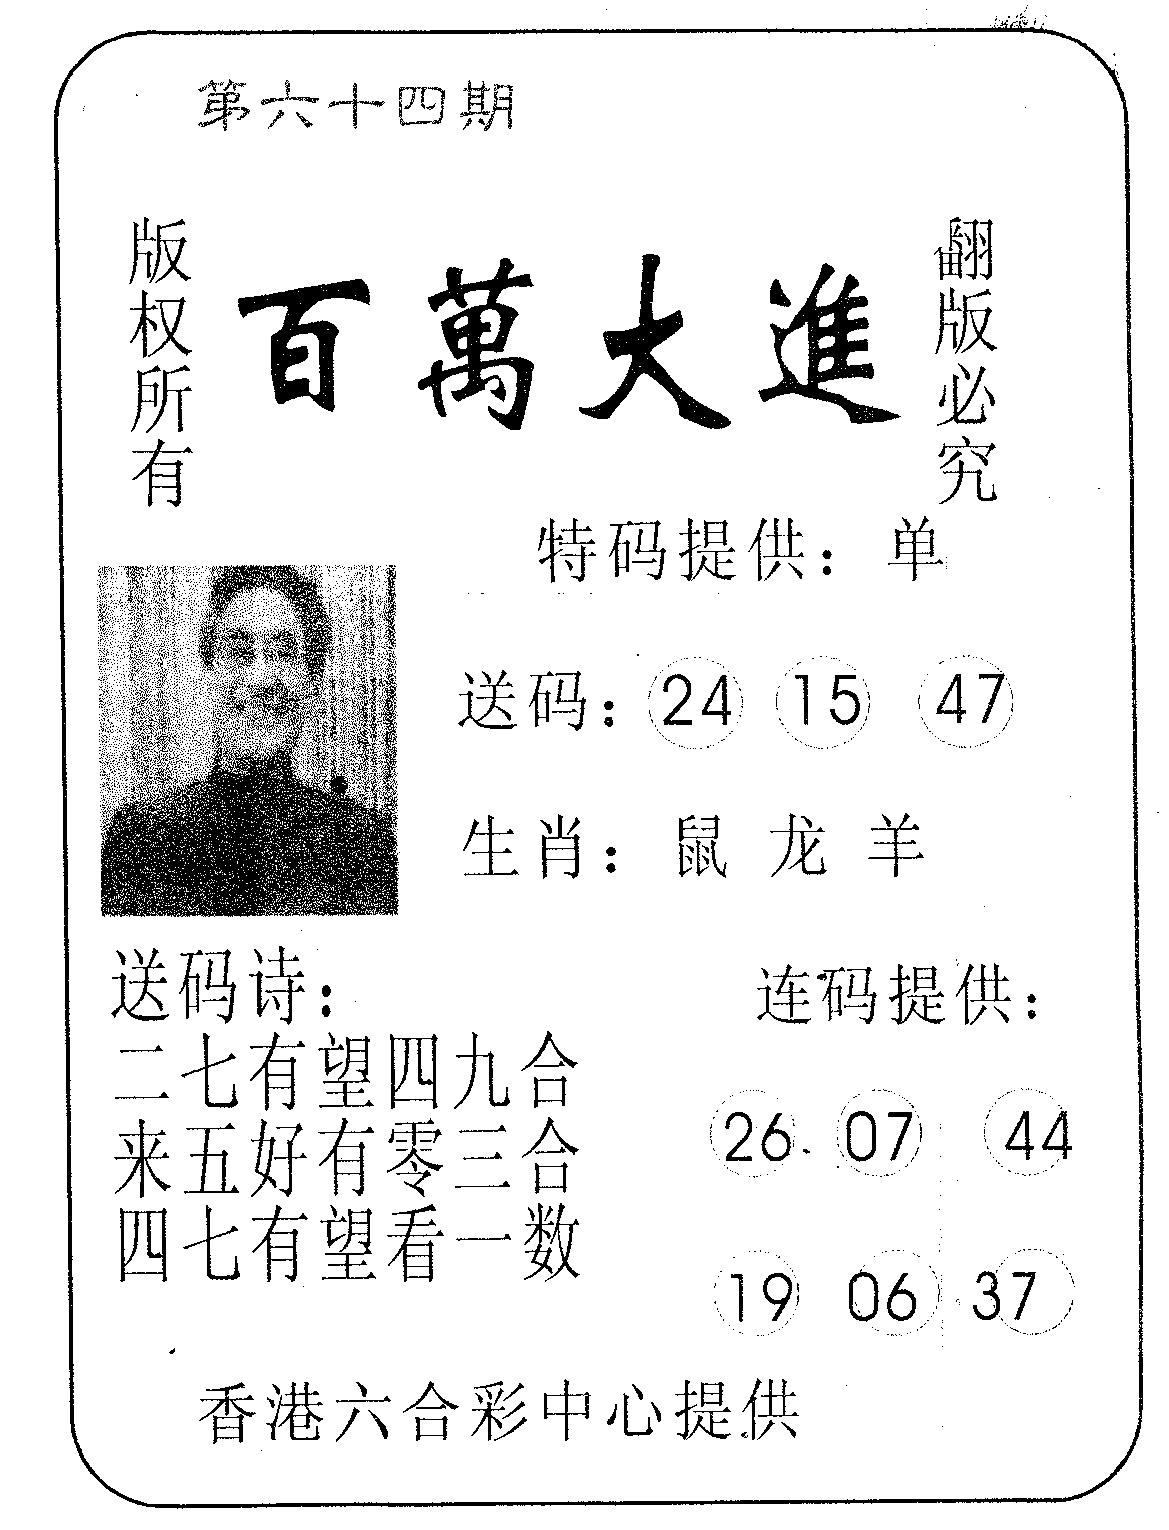 第六十四期
版权所有
百萬大進
翻版必究
特码提供：单
送码：24 15 47
生肖：鼠 龙 羊
送码诗：
二七有望四九合
来五好有零三合
四七有望看一数
连码提供：
26 07 44
19 06 37
香港六合彩中心提供